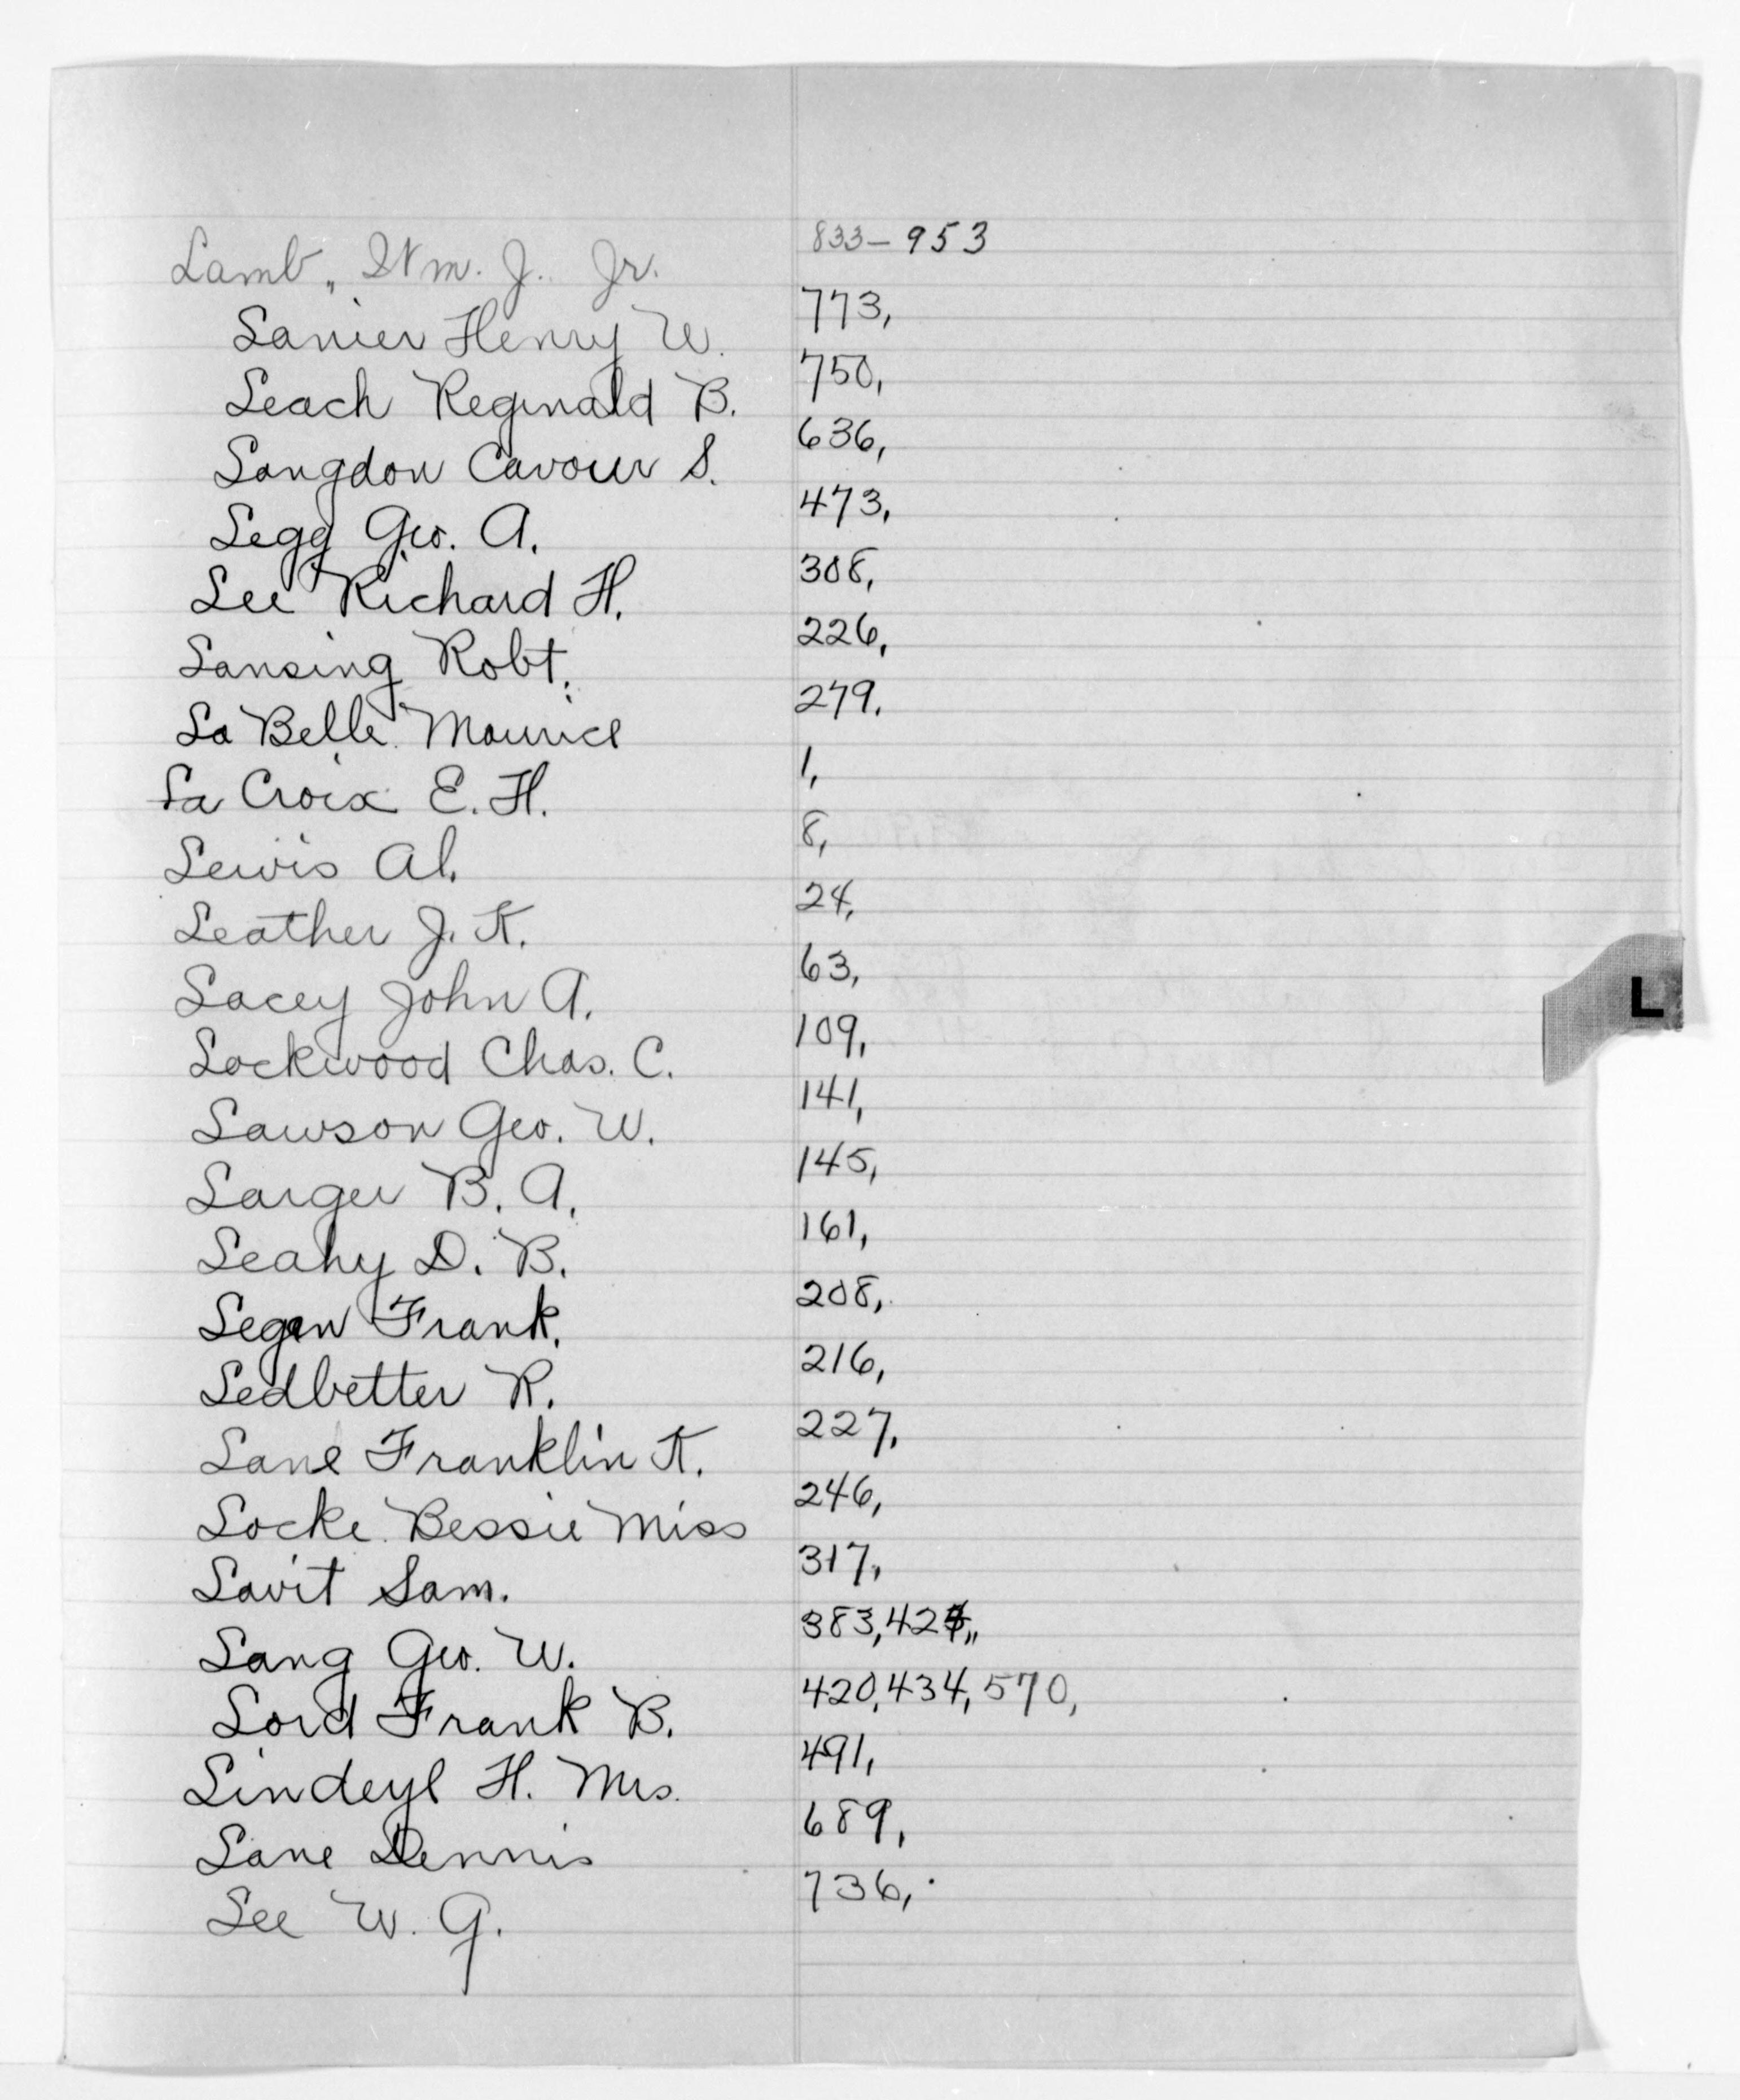 Lamb, Wm. J. Jr. 833-953
Lanier Henry W. 773,
Leach Reginald B. 750,
Langdon Cavour S. 636,
Legg Geo. A. 473,
Lee Richard H. 308,
Lansing Robt. 226,
La Belle Maurice 279.
La Croix E. H. 1,
Lewis Al. 8,
Leather J. K. 24,
Lacey John A. 63,
Lockwood Chas. C. 109,
Lawson Geo. W. 141,
Larger B. A. 145,
Leahy D. B. 161,
Legen Frank. 208,
Ledbetter R. 216,
Lane Franklin K. 227,
Locke Bessie Miss 246,
Lavit Sam. 317,
Lang Geo. W. 383,
Lord Frank B. 420,434,570,
Lindeyl H. Mrs. 491,
Lane Dennis 689,
Lee W. G. 736,
L